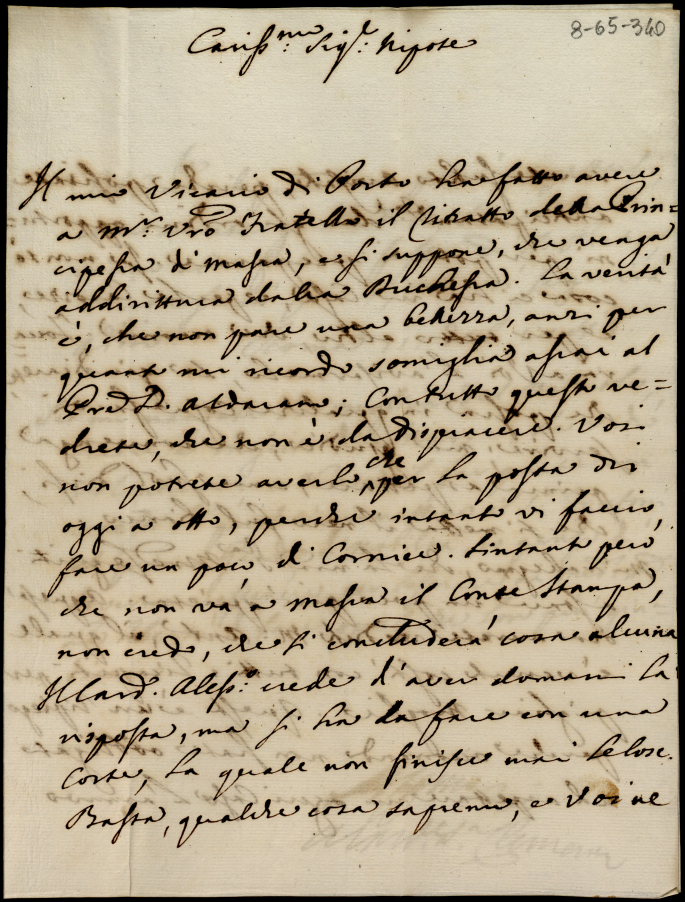 8-65-340
Cariss.mo Sig.r Nipote
Il mio Vicario di Porto ha fatto avere
a M.r Vrō Fratello il Ritratto della Prin=
cipessa di Massa, e si suppone, che venga
addirittura dalla Duchessa. La verità
è, che non pare una bellezza, anzi per
quanto mi ricordo somiglia assai al
D. Con tutto questo ve=
drete, che non è da dispiacere. Voi
non potrete averlo che per la posta di
oggi a otto, perche intanto vi faccio
fare un poco di Cornice. Sintanto però
che non và a Massa il Conte Stampa,
non credo, che si concluderà cosa alcuna
Il Card. Aless.o crede d'aver domani la
risposta, ma si ha da fare con una
Corte, la quale non finisce mai le cose.
Basta, qualche cosa sapremo, e Voi ne